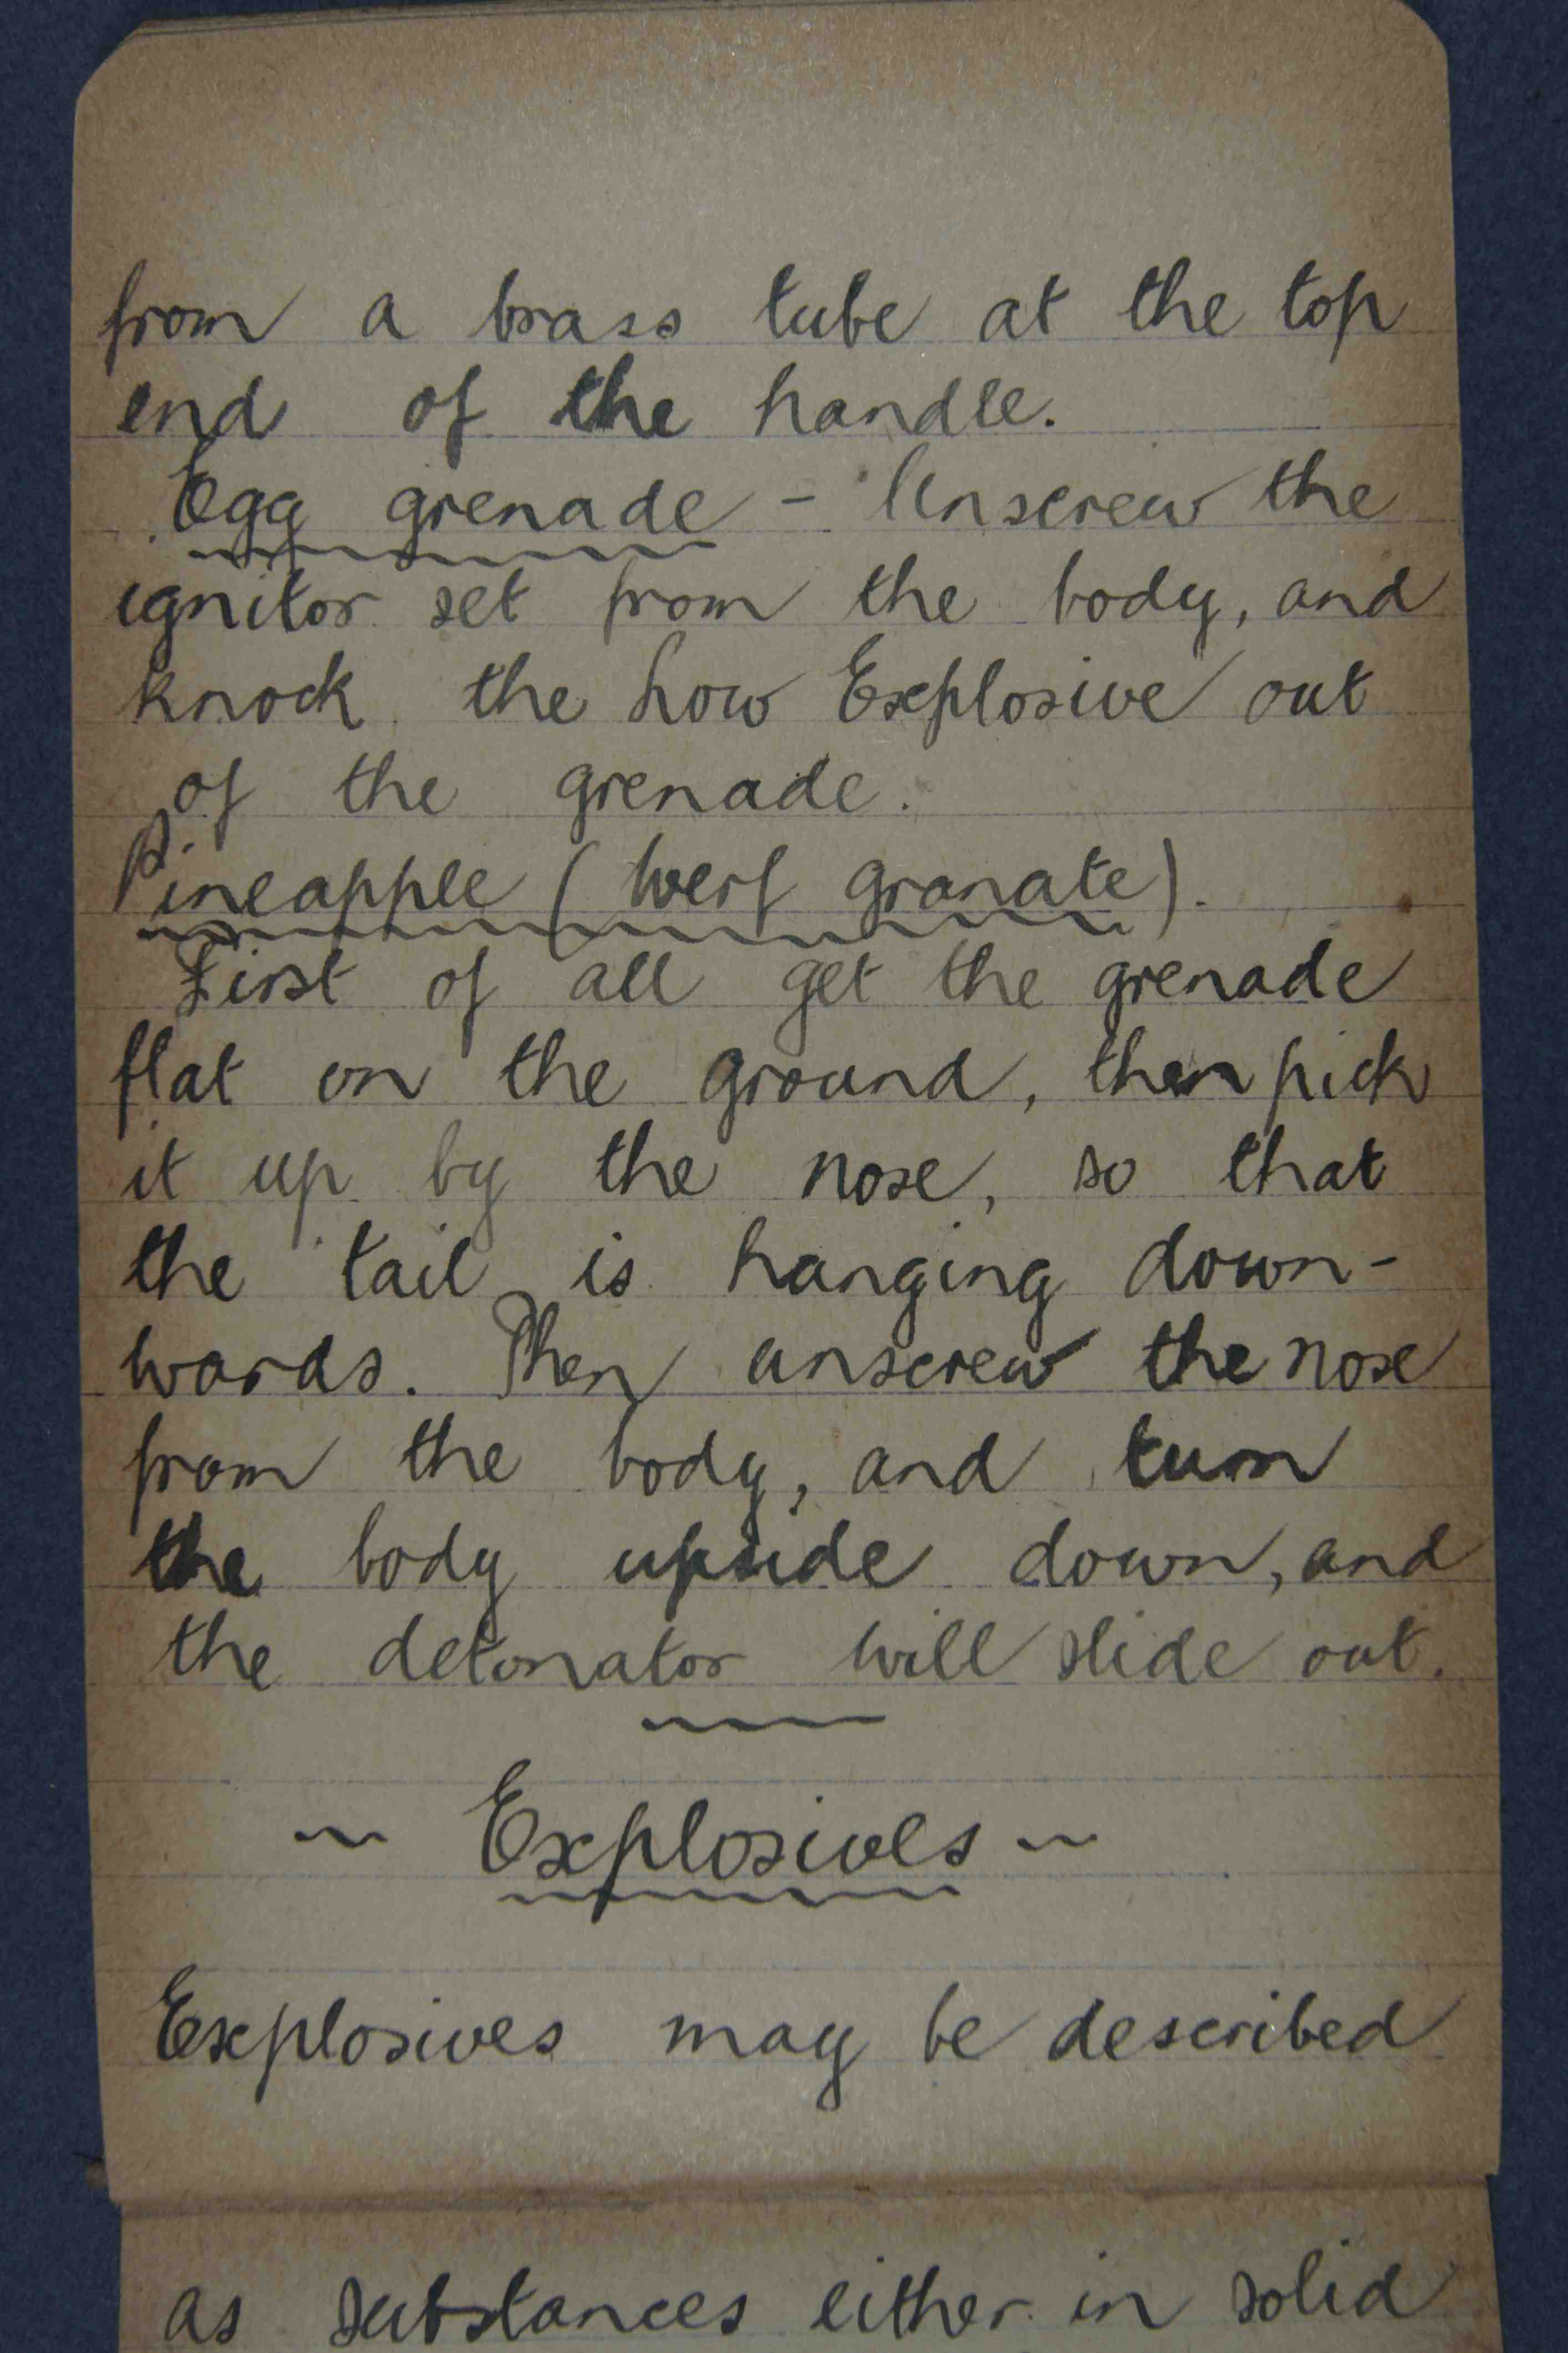 from a brass tube at the top
end of the handle.
Egg grenade - Unscrew the
ignitor set from the body, and
knock the Low Explosive out
of the grenade.
Pineapple (Werf Granate).
First of all get the grenade
flat on the ground, then pick
it up by the nose, so that
the tail is hanging down-
wards. Then unscrew the nose
from the body, and turn
the body upside down, and
the detonator will slide out.
~ Explosives ~
Explosives may be described
as substances either in solid